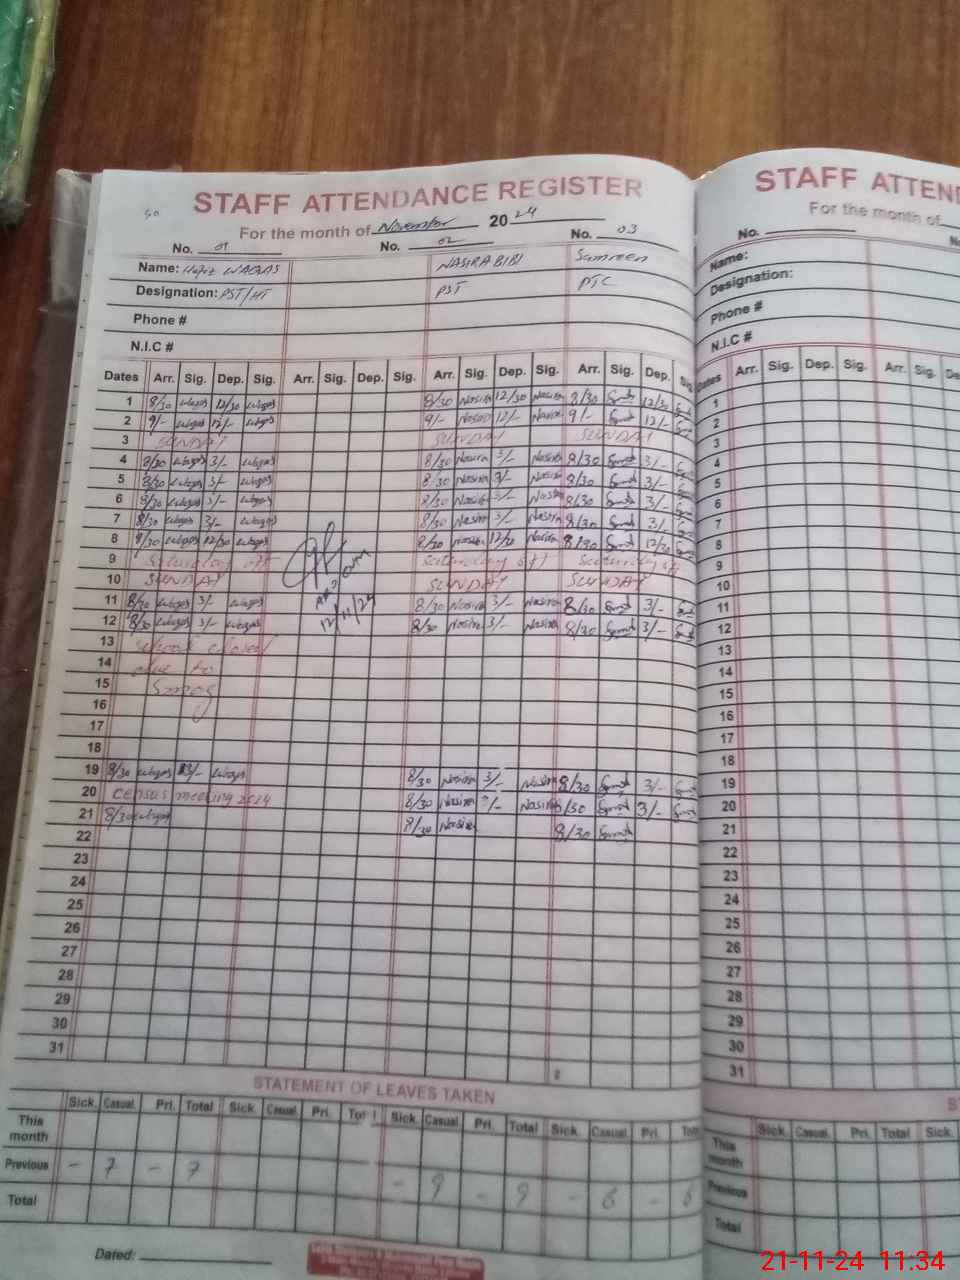 STAFF ATTENDANCE REGISTER
For the month of November 2024
No. 01 No. 02 No. 03
Name: WAQAS NASIRA BIBI Samreen
Designation: PST/HT PST PTC
Phone #
N.I.C #
Dates Arr. Sig. Dep. Sig. Arr. Sig. Dep. Sig. Arr. Sig. Dep. Sig. Arr. Sig. Dep. Sig
1 8/30 Waqas 12/30 Waqas 8/30 Nasira 12/30 Nasira 8/30 12/30
2 9/- Waqas 12/- Waqas 9/- Nasira 12/- Nasira 9/- 12/-
3 SUNDAY SUNDAY SUNDAY
4 8/30 Waqas 3/- Waqas 8/30 Nasira 3/- Nasira 8/30 3/-
5 8/30 Waqas 3/- Waqas 8/30 Nasira 3/- Nasira 8/30 3/-
6 8/30 Waqas 3/- Waqas 8/30 Nasira 3/- Nasira 8/30 3/-
7 8/30 Waqas 3/- Waqas 8/30 Nasira 3/- Nasira 8/30 3/-
8 8/30 Waqas 12/30 Waqas 8/30 Nasira 12/30 Nasira 8/30 12/30
9 Saturday off Saturday off Saturday off
10 SUNDAY SUNDAY SUNDAY
12/11/24
11 8/30 Waqas 3/- Waqas 8/30 Nasira 3/- Nasira 8/30 3/-
12 8/30 Waqas 3/- Waqas 8/30 Nasira 3/- Nasira 8/30 3/-
13 School closed
14 due to
15 Smog
16
17
18
19 8/30 Waqas 3/- Waqas 8/30 Nasira 3/- Nasira 8/30 3/-
20 census meeting 2024 8/30 Nasira 3/- Nasira 8/30 3/-
21 8/30 Waqas 8/30 Nasira 8/30
22
23
24
25
26
27
28
29
30
31
STATEMENT OF LEAVES TAKEN
Sick. Casual. Pri. Total Sick. Casual. Pri. Sick. Casual. Pri. Total Sick. Casual. Pri.
This month
Previous - 7 - 7 - 9 - 9 - 6 - 6
Total
Dated:
STAFF ATTEND
For the month of
No.
Name:
Designation:
Phone #
N.I.C #
Dates Arr. Sig. Dep. Sig. Arr. Sig.
1
2
3
4
5
6
7
8
9
10
11
12
13
14
15
16
17
18
19
20
21
22
23
24
25
26
27
28
29
30
31
Sick. Casual. Pri. Total Sick.
This month
Previous
Total
21-11-24 11:34